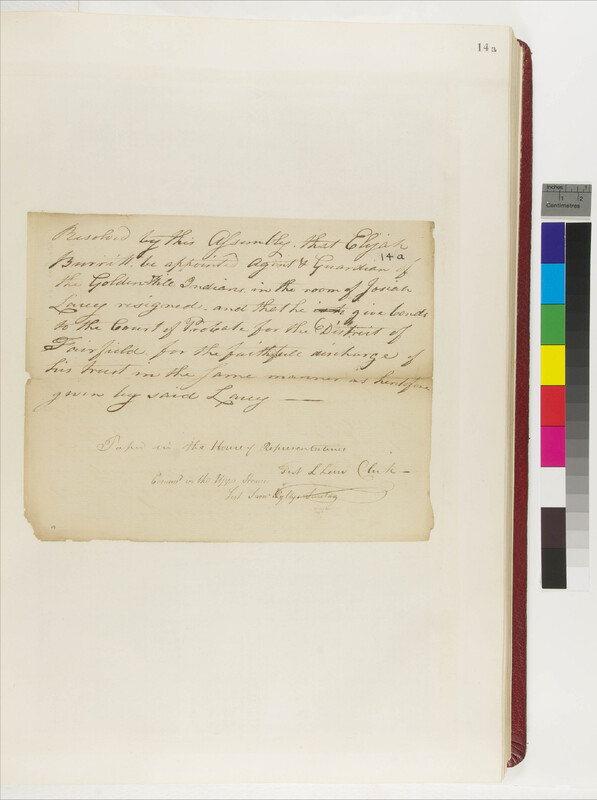 14a
Resolved by this Assembly, that Elijah
Burritt be appointed Agent & Guardian of
14a
the Golden Hill Indians in the room of Josiah
Lacey resigned, and that he give bonds
to the Court of Probate for the District of
Fairfield, for the faithfull discharge of
his trust in the same manner as heretofore
given by said Lacey —
Pased in the House of Representatives
Test Clerk —
in the Upper House
Test Sam Wyllys Secretary
inches 1 2
Centimetres